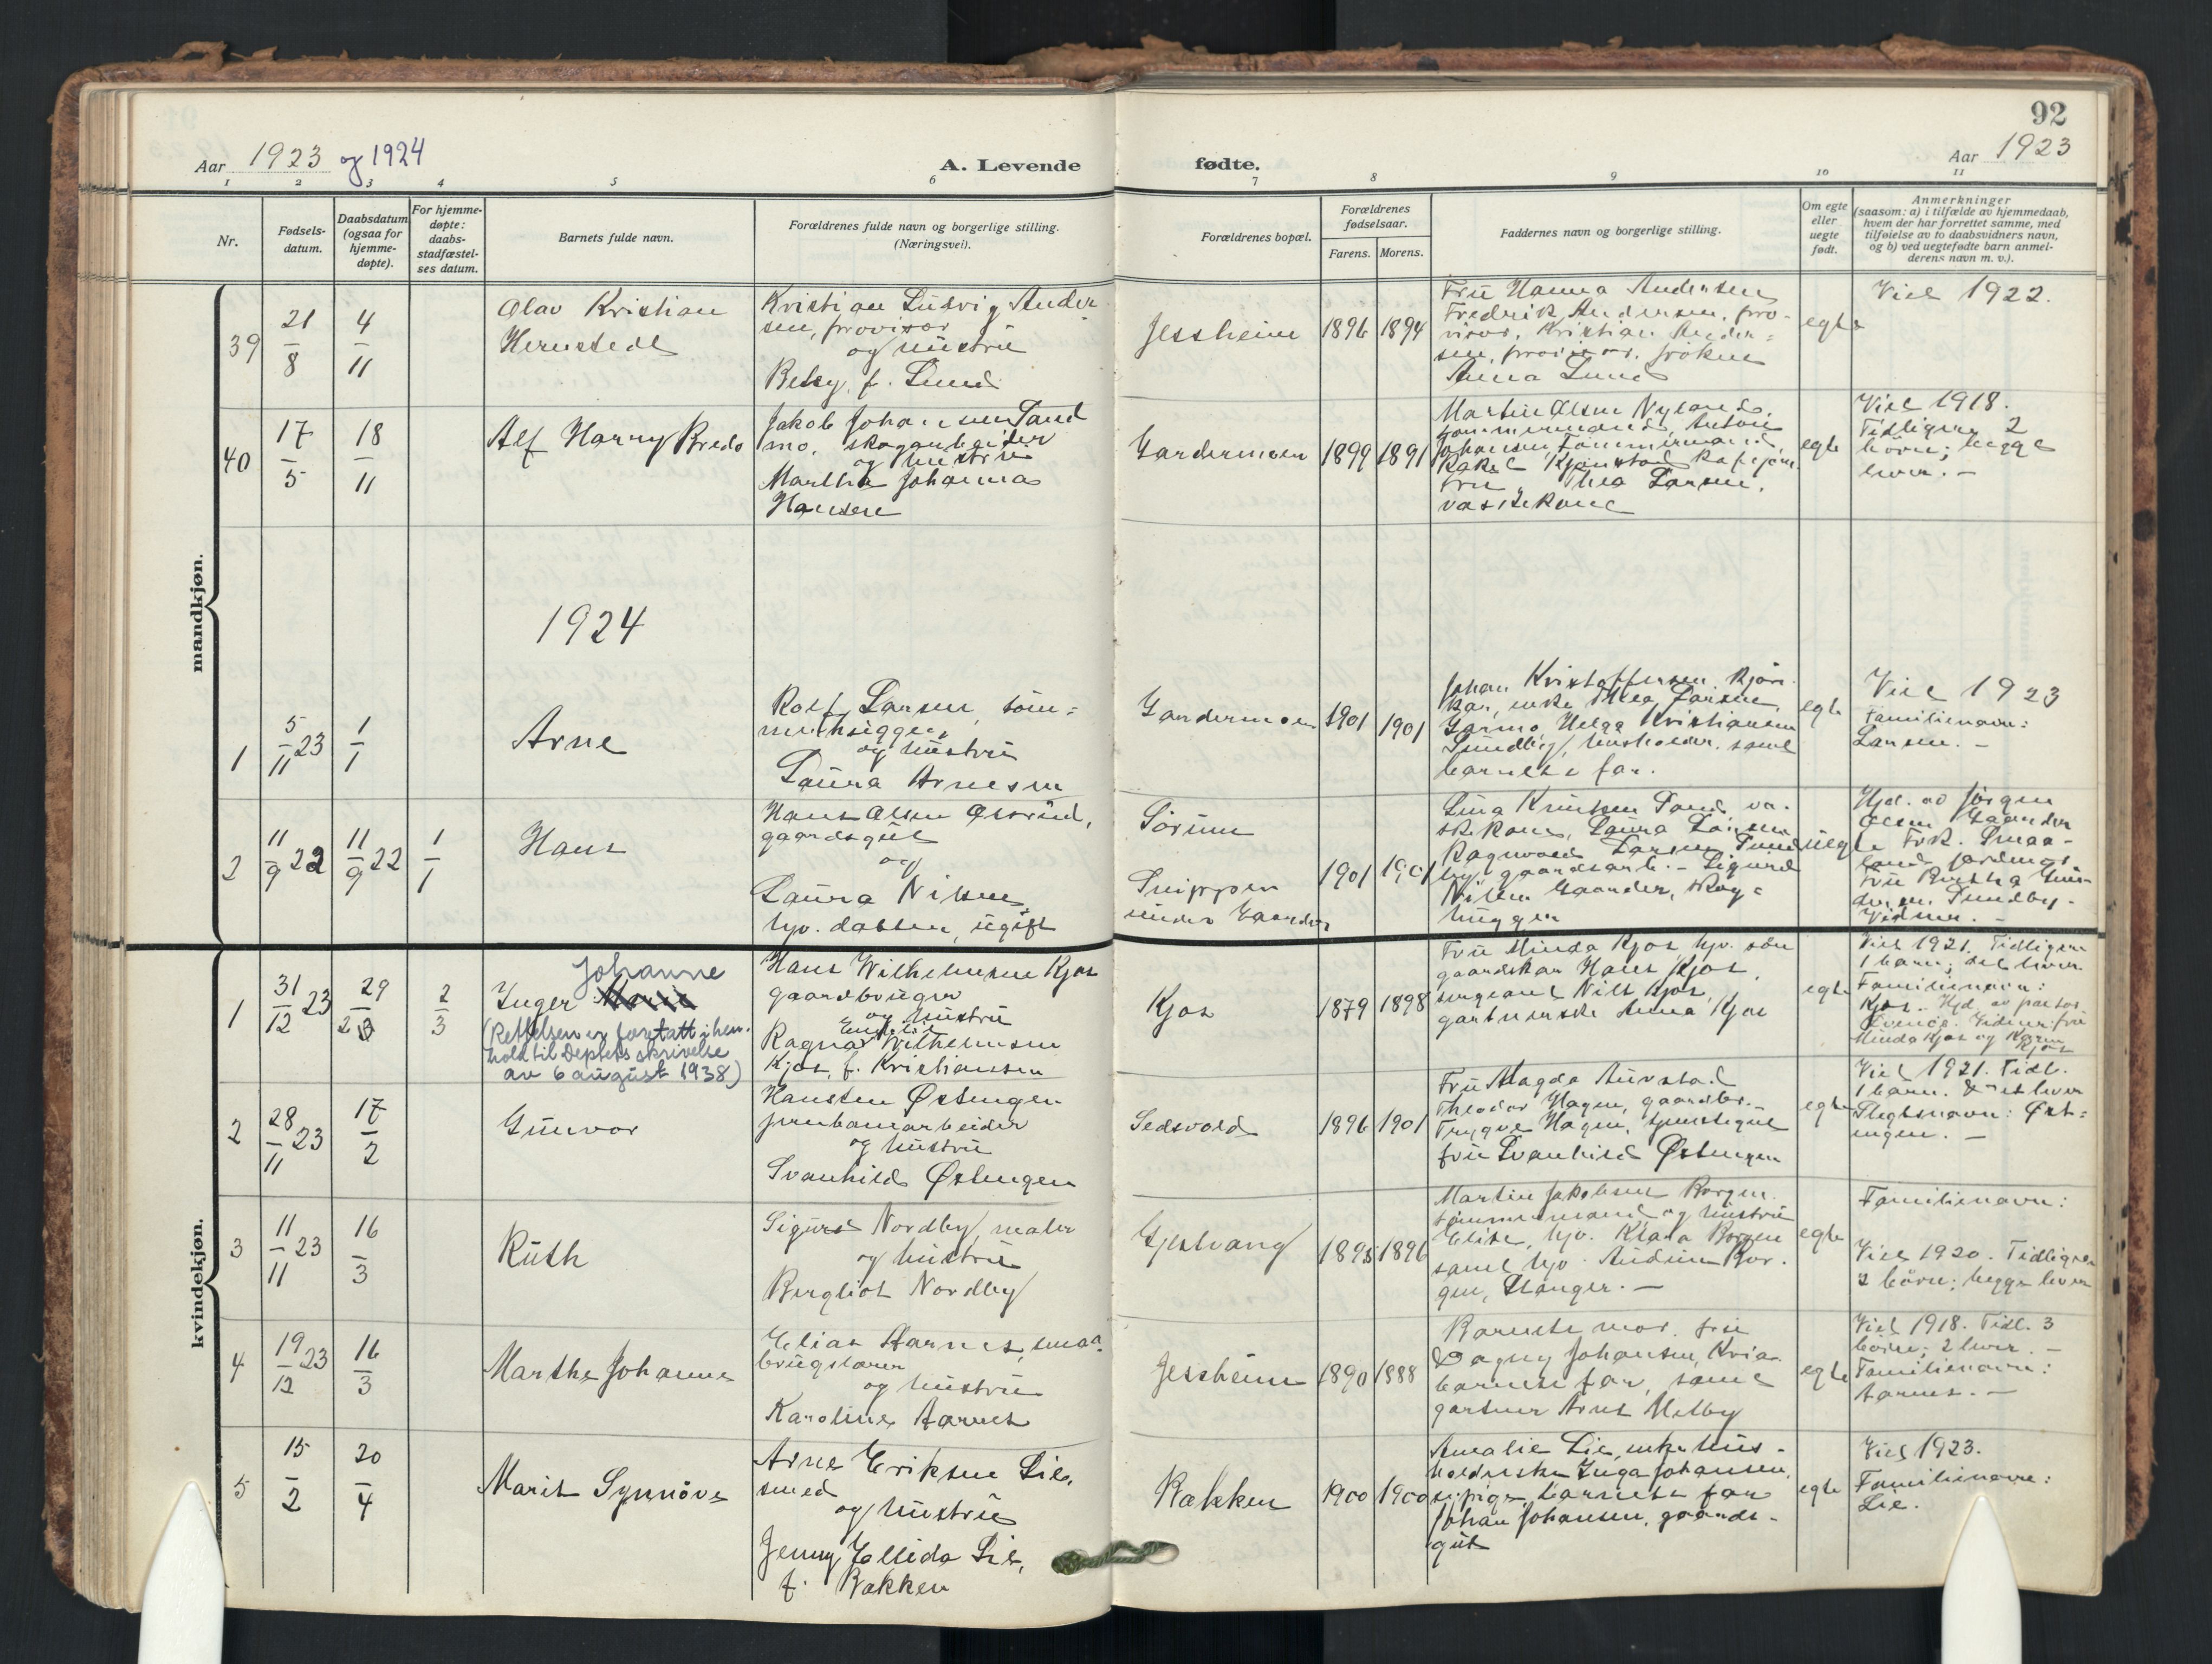 92
Aar 1923 og 1924
A. Levende
fødte.
Aar 1923
1 2 3 4 5 6 7 8 9 10 11
Nr.
Fødsels-
datum.
Daabsdatum
(ogsaa for
hjemme-
døpte).
For hjemme-
døpte:
daabs-
stadfæstel-
ses datum.
Barnets fulde navn.
Forældrenes fulde navn og borgerlige stilling.
(Næringsvei).
Forældrenes bopæl.
Forældrenes
fødselsaar.
Farens. Morens.
Faddernes navn og borgerlige stilling.
Om egte
eller
uegte
født.
Anmerkninger
(saasom: a) i tilfælde av hjemmedaab,
hvem der har forrettet samme, med
tilføielse av to daabsvidners navn,
og b) ved uegtefødte barn anmel-
derens navn m. v.).
mandkjøn.
39
21
8
4
11
Olav Kristian
Hernstedt
Kristian Ludvig Ander
sen, provisor
og hustru
Betsy, f. Lund
Jessheim
1896 1894
Fru Hanna Andersen
Fredrik Andersen, pro-
visor, Kristian Ander-
sen, provisor, frøken
Anna Lund
egte
Viet 1922.
40
17
5
18
11
Alf Harry Bredo
Jakob Johansen Sand
mo, skogarbeider
og hustru
Martha Johanna
Hansen
Gardermoen
1899 1891
Martin Olsen Nyland,
tømmermand, Anton
Johansen, tømmermand,
Rakel
fru Thea Larsen,
vaskekone
egte
Viet 1918.
Tidligere 2
børn; begge
lever. -
1924
1
5
11 23
1
1
Arne
Rolf Larsen, tøm=
merhugger
og hustru
Laura Arnesen
Gardermoen
1901 1901
Johan Kristoffersen
enke Thea Larsen,
Garmo, Helga Kristiansen
Sundby, husholder. samt
barnets far.
egte
Viet 1923
Familienavn:
Larsen. -
2
11
9 22
11
9 22
1
1
Hans
Hans Olsen
gaardsgut
og
Laura Nilsen,
hjv. datter, ugift
Sørum
Snippen
under Gaarder
1901 1901
Lina Knutsen Sand, va-
skekone, Laura Larsen
Ragnvald Larsen Sund
by, gaardsarb. - Sigurd
Nilsen Gaarder, skog=
hugger
uegte
Hjd. av Jørgen
Olsen Gaarder
Frk. Smaa-
land, jordmor.
Fru Berthe
Sundby.
Vidner. -
kvindekjøn.
1
31
12 23
29
2
2
3
Johanne
Inger Marie
(Rettelsen er foretatt i hen.
hold til Dep'tets skrivelse
av 6 august 1938)
Hans Wilhelmsen Kjos
gaardbruger
og hustru
Ragna Wilhelmsen
Kjos, f. Kristiansen
Kjos
1879 1898
Fru Minda Kjos, hjv. søn
gaardskar Hans Kjos,
sergeant Nils Kjos,
gartnerske Anna Kjos
egte
Viet 1921. Tidligere
1 barn; det lever.
Familienavn:
Kjos. Hjd. av pastor
Vidner: fru
Minda Kjos og Karen
Kjos
2
28
11 23
17
2
Gunvor
Karsten Østengen
jernbanearbeider
og hustru
Svanhild Østengen
Sedsvold
1896 1901
Fru Magda Aurstad
Theodor Hagen, gaardbr. -
Trygve Hagen,
fru Svanhild Østengen
egte
Viet 1921. Tidl.
1 barn. Det lever
Slegtsnavn: Øst=
engen. -
3
11
11 23
16
3
Ruth
Sigurd Nordby, maler
og hustru
Bergliot Nordby
Gjestvang
1895 1896
Martin Jakobsen Borgen
tømmermand og hustru
Elise, hjv. Klara Borgen
samt hjv. Audun Bor-
gen, Stanger. -
egte
Familienavn:
Viet 1920. Tidligere
2 børn; begge lever
4
19
12 23
16
3
Marthe Johanne
Elias Aarnes, smaa
bruglærer
og hustru
Karoline Aarnes
Jessheim
1890 1888
Barnets mor, fru
Dagny Johansen,
barnets far, samt
gartner Arnt Melby
egte
Viet 1918. Tidl. 3
børn; 2 lever. -
Familienavn:
Aarnes. -
5
15
2
20
4
Marit Synnøve
Arne Eriksen Lie,
smed
og hustru
Jenny Ellida Lie,
f. Bakken
Bakken
1900 1900
Amalie Lie, enke, hus-
holderske Inga Johansen,
barnets far
Johan Johansen, gaards-
gut
egte
Viet 1923.
Familienavn:
Lie.